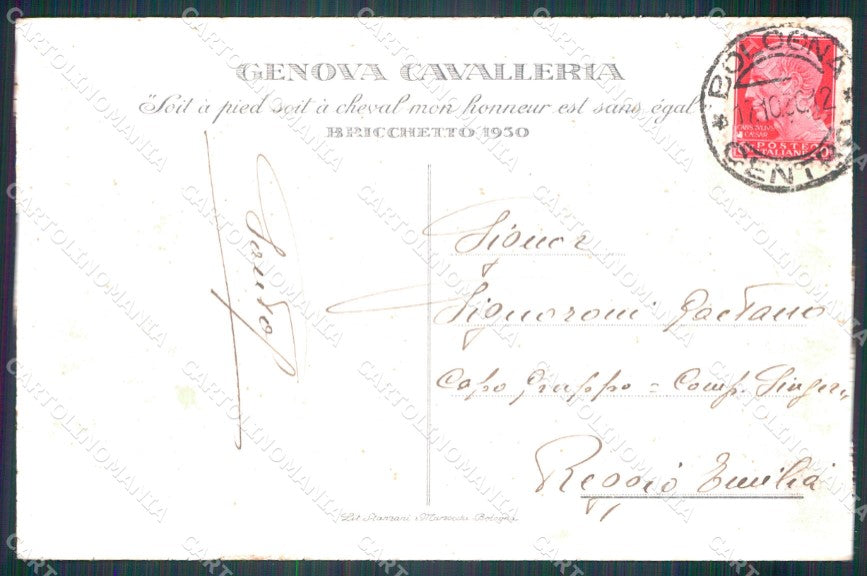 GENOVA CAVALLERIA
"Soit à pied soit à cheval mon honneur est sans égal"
BRICCHETTO 1930
BOLOGNA
CENTRO
POSTE
ITALIANE
Signor
Signoroni Gaetano
Capo Gruppo = Comp. Singer
Reggio Emilia
Lit. Stamani Bologna
CARTOLINOMANIA